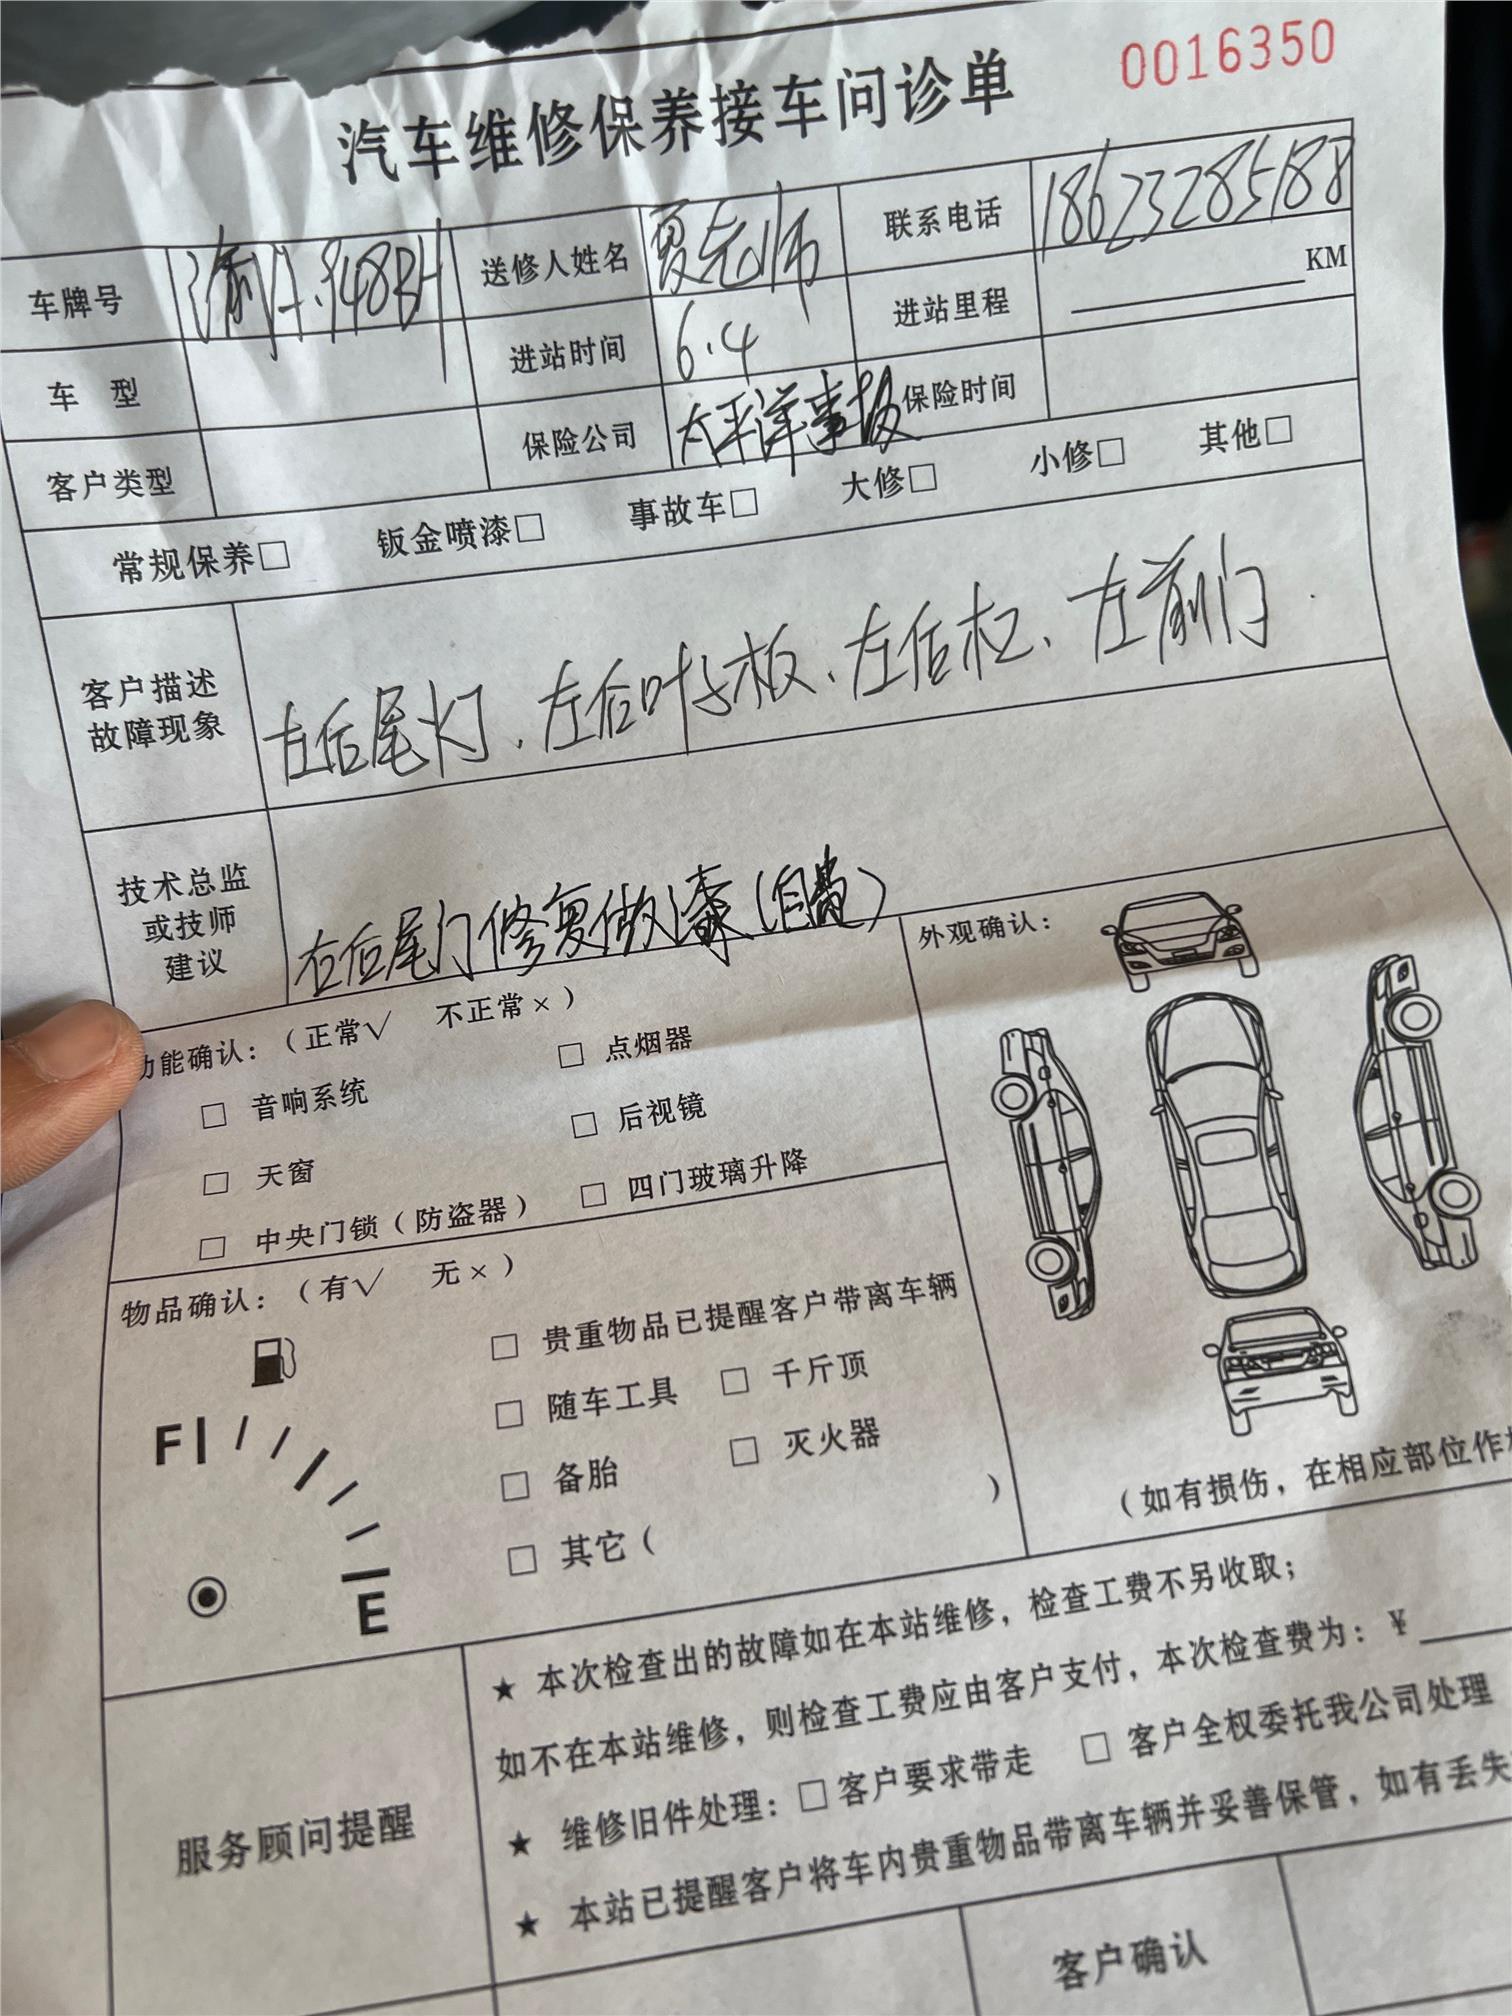 0016350
汽车维修保养接车问诊单
车牌号 渝A·948BH 送修人姓名 夏老师 联系电话 18623285188
车 型 进站时间 6.4 进站里程 KM
客户类型 保险公司 太平洋事故 保险时间
常规保养□ 钣金喷漆□ 事故车□ 大修□ 小修□ 其他□
客户描述
故障现象
左后尾灯、左后叶子板、左后杠、左前门.
技术总监
或技师
建议
右后尾门修复做漆(自费)
功能确认：（正常√ 不正常×）
□ 音响系统 □ 点烟器
□ 天窗 □ 后视镜
□ 中央门锁（防盗器） □ 四门玻璃升降
外观确认：
（如有损伤，在相应部位作
物品确认：（有√ 无×）
F E
□ 贵重物品已提醒客户带离车辆
□ 随车工具 □ 千斤顶
□ 备胎 □ 灭火器
□ 其它（ ）
服务顾问提醒
★ 本次检查出的故障如在本站维修，检查工费不另收取；
如不在本站维修，则检查工费应由客户支付，本次检查费为：¥
★ 维修旧件处理：□客户要求带走 □ 客户全权委托我公司处理
★ 本站已提醒客户将车内贵重物品带离车辆并妥善保管，如有丢失
客户确认